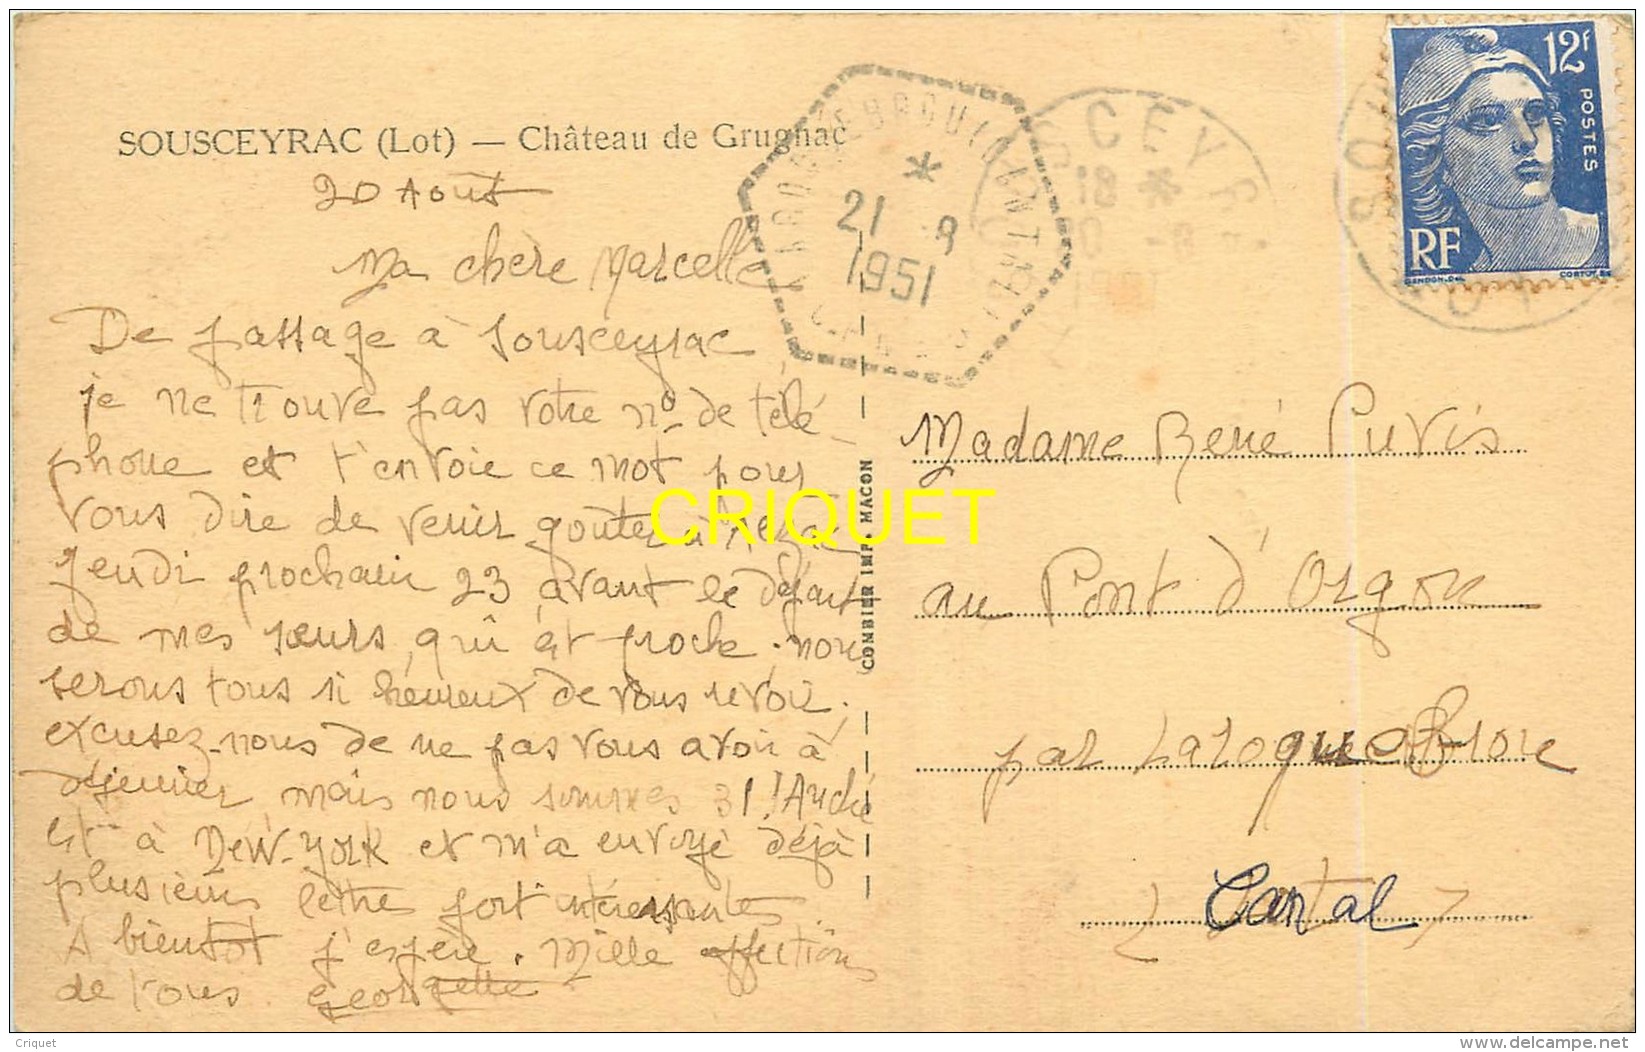 SOUSCEYRAC (Lot) — Château de Grugnac
20 Août
Ma chère Marcelle
De passage à Sousceyrac
je ne trouve pas votre n° de télé-
phone et t'envoie ce mot pour
vous dire de venir goûter à
jeudi prochain 23 avant le départ
de mes sœurs, qui est proche. nous
serons tous si heureux de vous revoir.
excusez-nous de ne pas vous avoir à
déjeuner mais nous sommes 31! André
est à New-York et m'a envoyé déjà
plusieurs lettres fort intéressantes.
A bientôt j'espère. Mille affections
de tous. Georgette
COMBIER IMP. MACON
CRIQUET
21 -8
1951
CEYR
18 *
12f
POSTES
RF
GANDON.DEL
Madame René Puvis
au Pont d'Orgon
par Laroquebrou
Cantal
Criquet
www.delcampe.net